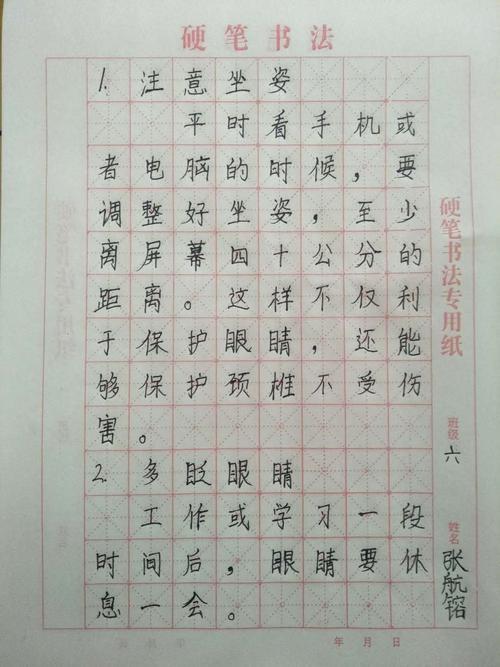 硬笔书法
1. 注意坐姿
平时看手机或
者电脑的时候，要
调整好坐姿，至少
离屏幕四十公分的
距离。这样不仅利
于保护眼睛，还能
够保护颈椎不受伤
害。
2. 多眨眼睛
工作或学习一段
时间后，眼睛要休
息一会。
硬笔书法专用纸
班级
六
姓名
张航镕
年 月 日